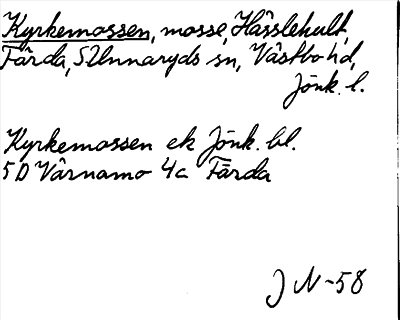 Kyrkemossen, mosse, Hässlehult,
Färda, S Unnaryds sn, Västbo hd,
Jönk. l.
Kyrkemossen ek Jönk. bl.
5D Värnamo 4c Färda
J N-58